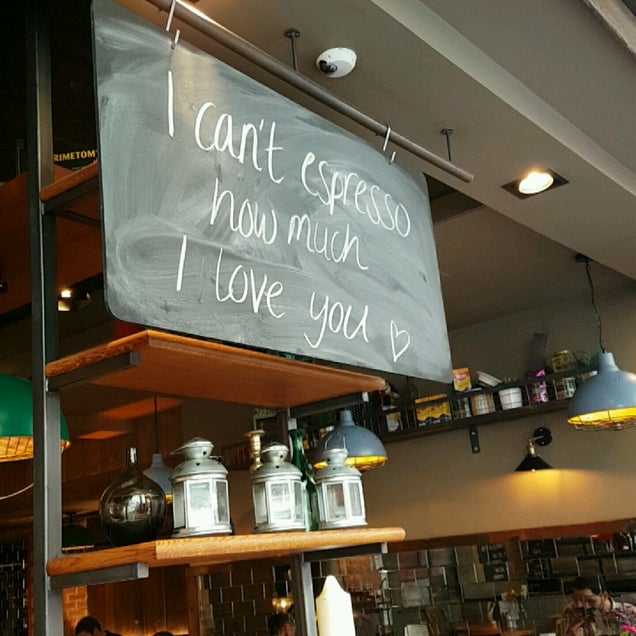 RIMETOM
I can't espresso
how much
I love you ♡